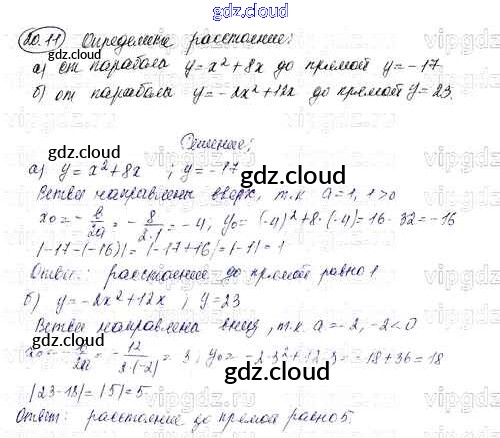 gdz.cloud
20.11 Определите расстояние:
gdz.cloud
а) от параболы y = x² + 8x до прямой y = -17
б) от параболы y = -2x² + 12x до прямой y = 23.
Решение:
gdz.cloud
а) y = x² + 8x ; y = -17
gdz.cloud
Ветви направлены вверх, т.к a = 1, 1 > 0
x₀ = - b/2a = - 8/2·1 = -4, y₀ = (-4)² + 8·(-4) = 16 - 32 = -16
|-17-(-16)| = |-17+16| = |-1| = 1
gdz.cloud
Ответ: расстояние до прямой равно 1
б) y = -2x² + 12x ; y = 23
Ветви направлена вниз, т.к. a = -2, -2 < 0
x₀ = - b/2a = - 12/2·(-2) = 3, y₀ = -2·3² + 12·3 = -18 + 36 = 18
gdz.cloud
gdz.cloud
|23-18| = |5| = 5
Ответ: расстояние до прямой равно 5.
gdz.cloud